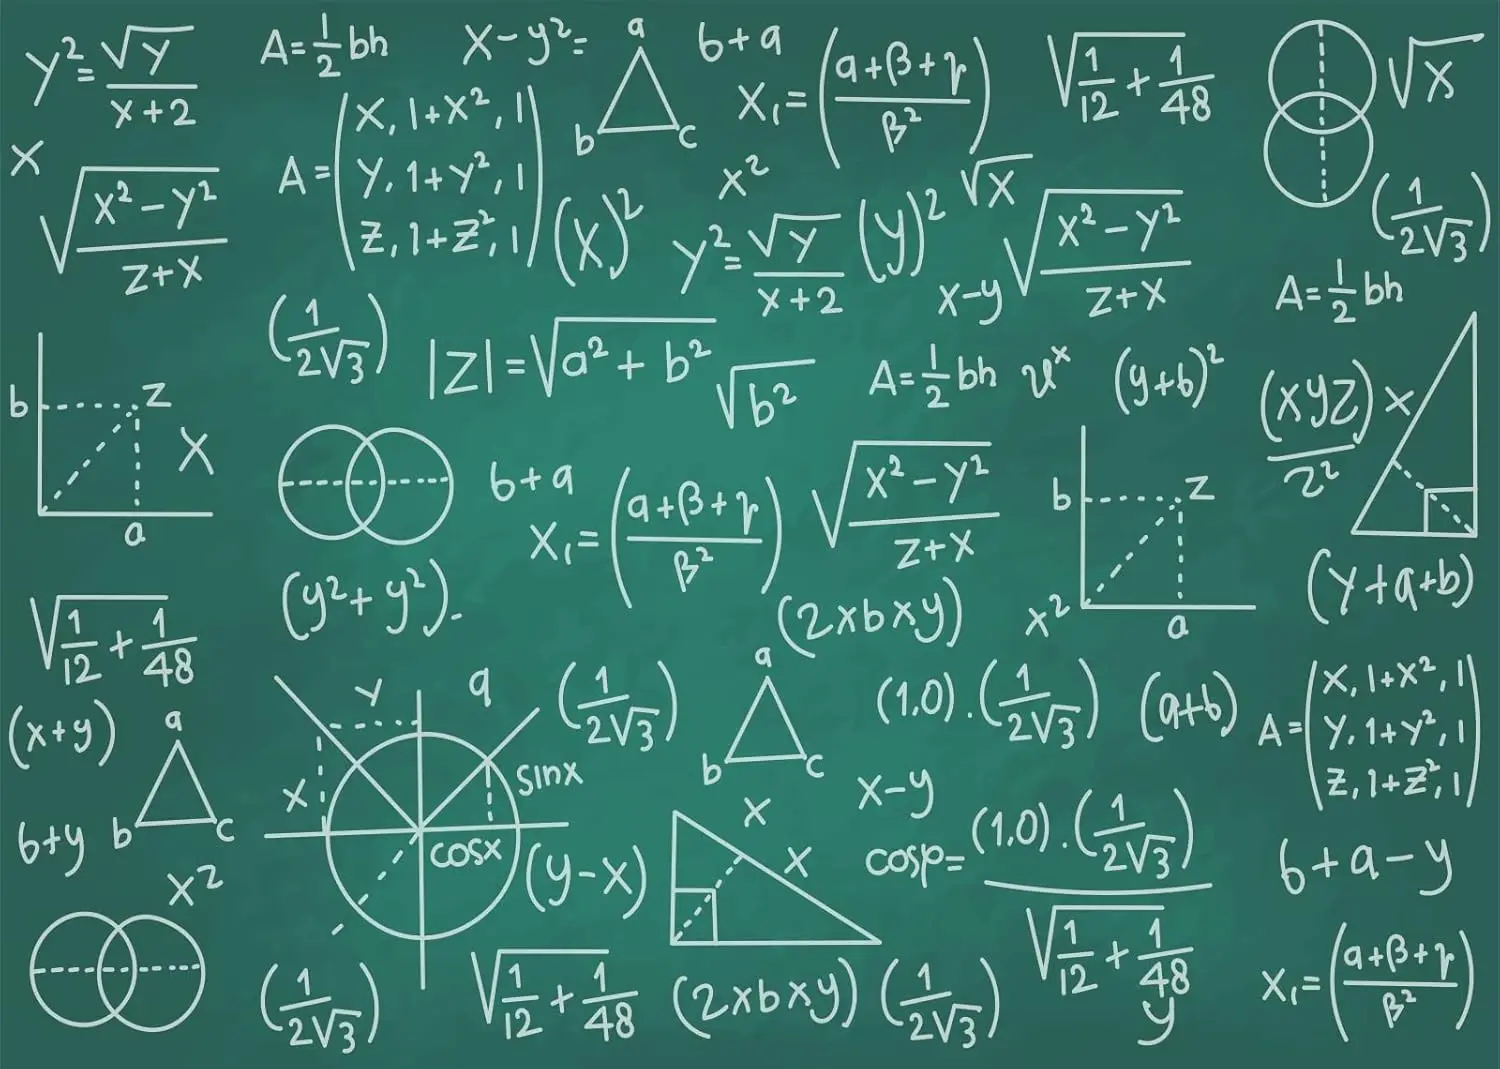 y² = √y / x+2
A = 1/2 bh
x - y² =
a
b c
6+a
x₁ = (a+β+γ / β²)
√1/12 + 1/48
√x
x
√x² - y² / z+x
A = (x, 1+x², 1
y, 1+y², 1
z, 1+z², 1)
(x)²
x²
y² = √y / x+2
(y)²
√x
x-y
√x² - y² / z+x
(1 / 2√3)
A = 1/2 bh
(1 / 2√3)
|z| = √a² + b²
√b²
A = 1/2 bh
(y+b)²
(xyz) / z²
x
b z
x
a
6+a
x₁ = (a+β+γ / β²)
√x² - y² / z+x
b z
a
(y² + y²).
(2xbxy)
x²
(y+a+b)
√1/12 + 1/48
(x+y)
a
b c
6+y
x²
y
q
x
sinx
cosx
(1 / 2√3)
a
b c
(1,0) . (1 / 2√3)
(a+b)
A = (x, 1+x², 1
y, 1+y², 1
z, 1+z², 1)
(y-x)
x
x
x-y
cosp = (1,0) . (1 / 2√3) / √1/12 + 1/48
y
6+a-y
(1 / 2√3)
√1/12 + 1/48
(2xbxy)
(1 / 2√3)
x₁ = (a+β+γ / β²)